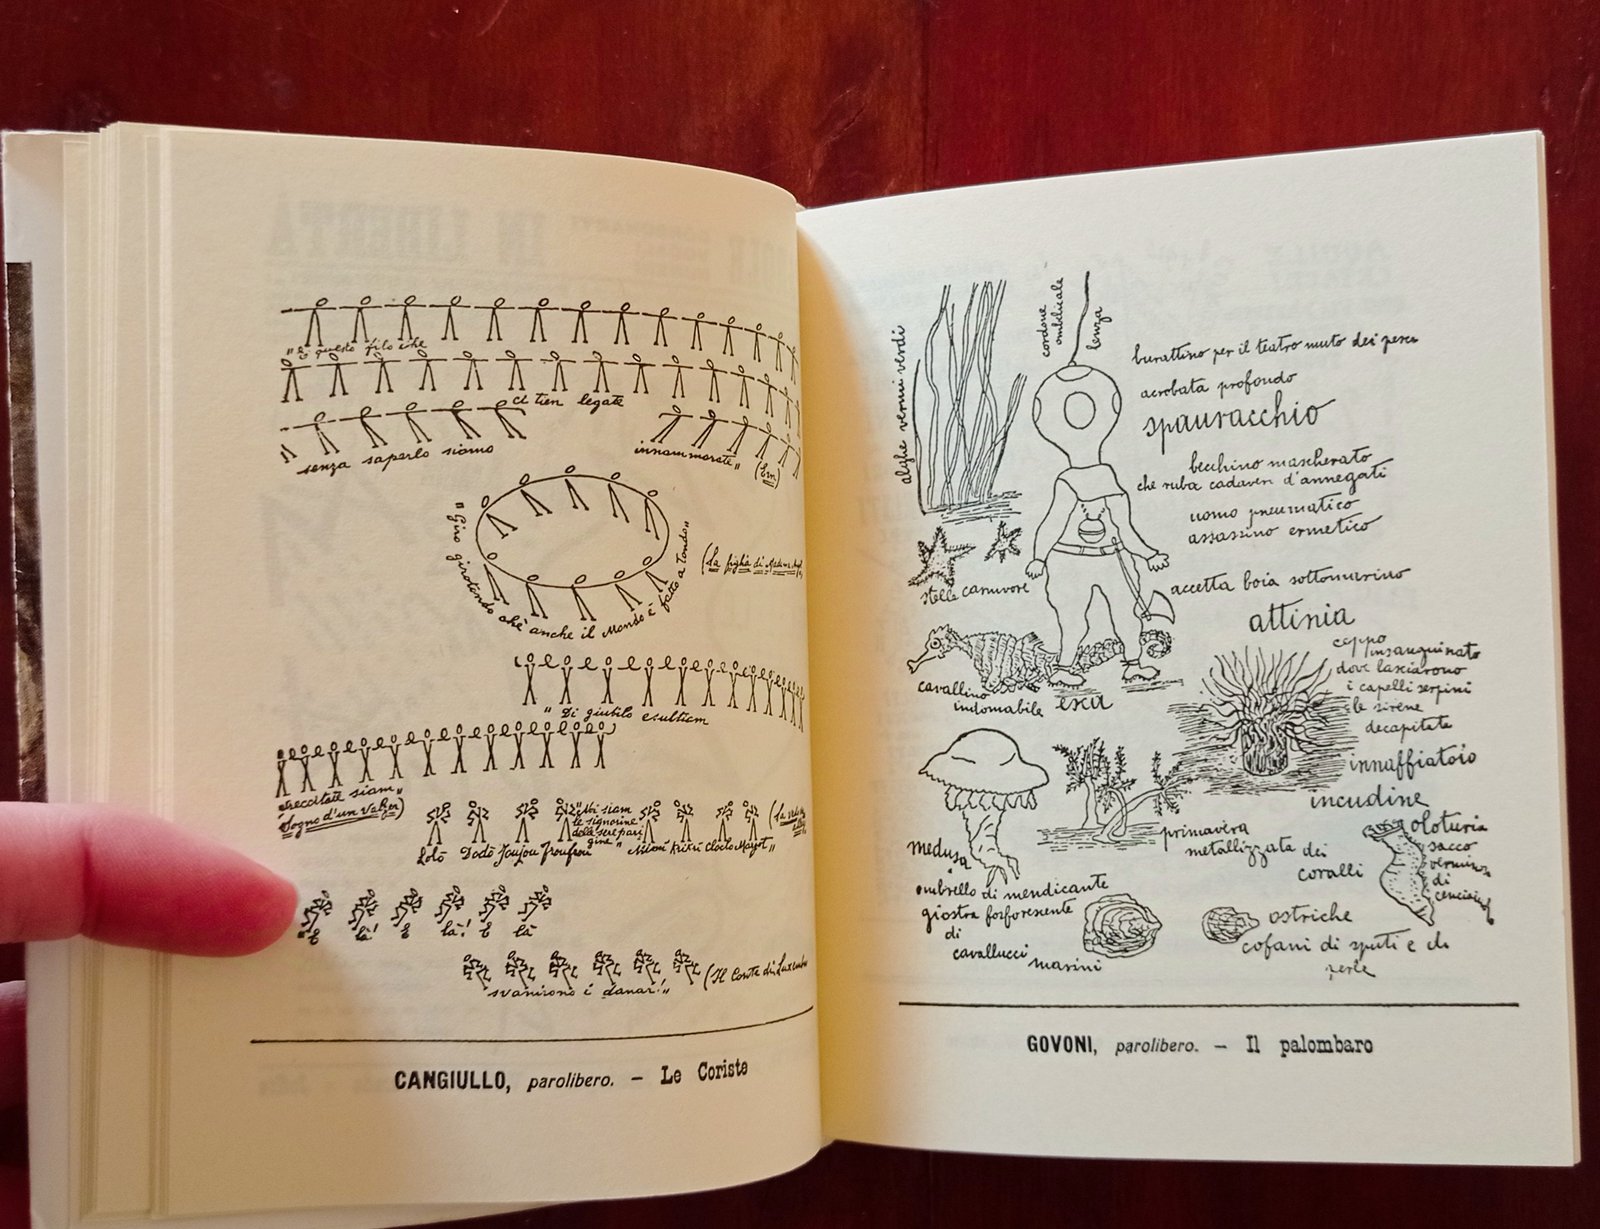 "è questo filo che
ci tien legate
senza saperlo siamo
innammorate"
(Ern)
"Giro girotondo chè anche il Mondo è fatto a tondo"
(La figlia di Madame
"Di giubilo esultiam
treccitate siam"
(Sogno d'un Valzer)
"Noi siam
le signorine
delle serepari
gine"
Lolò Dodò Joujou Froufrou
Cloclo Margot"
(La
è là! è là! è là
svaniròno i danar!"
(Il Conte di Luxembu
CANGIULLO, parolibero. — Le Coriste
alghe vermi verdi
cordone
ombelicale
lenza
burattino per il teatro muto dei pesci
acrobata profondo
spauracchio
becchino mascherato
che ruba cadaveri d'annegati
uomo pneumatico
assassino ermetico
stelle carnivore
accetta boia sottomarino
attinia
ceppo
insanguinato
dove lasciarono
i capelli serpini
le sirene
decapitate
cavallino
indomabile
esca
innaffiatoio
incudine
primavera
metallizzata dei
coralli
oloturia
sacco
di
medusa
ombrello di mendicante
giostra fosforescente
di
cavallucci
marini
ostriche
cofani di sputi e di
perle
GOVONI, parolibero. — Il palombaro